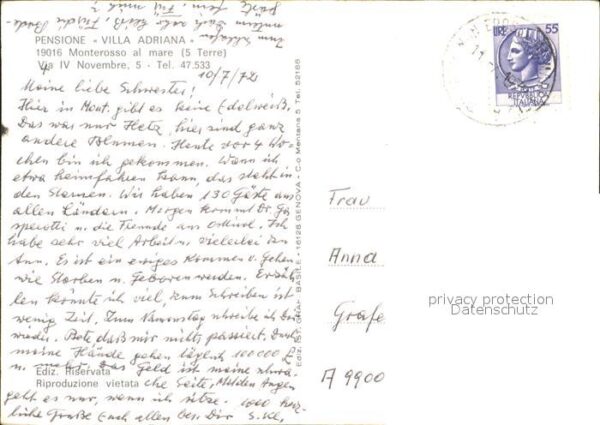 PENSIONE "VILLA ADRIANA"
19016 Monterosso al mare (5 Terre)
Via IV Novembre, 5 - Tel. 47.533
10/7/72
Meine liebe Schwester!
Hier in Mont. gibt es keine Edelweiß.
Das war nur Hetz, hier sind ganz
andere Blumen. Heute vor 4 Wo-
chen bin ich gekommen. Wann ich
etwa heimfahren kann, das steht in
den Sternen. Wir haben 130 Gäste aus
allen Ländern. Morgen kommt Dr. Gas
sperotti u. die Freunde aus Ich
habe sehr viel Arbeit u. vielerlei zu
tun. Es ist ein ewiges Kommen u. Gehen
wie Sterben u. Geboren werden. Erzäh-
len könnte ich viel, zum Schreiben ist
wenig Zeit. Zum Namenstag schreibe ich Dir
wieder. Bete daß mir nichts passiert. Durch
meine Hände gehen täglich 100 000 £
u. mehr. Das Geld ist meine schwa-
che Seite, Augen
geht es nur, wenn ich sitze. 1000 herz-
liche Grüße Euch allen bes. Dir S. Kl.
Ediz. Riservata
Riproduzione vietata
Ediz. IST. GRAF. BASILE - 16128 GENOVA - C.o Mentana 5 Tel. 52186
LIRE 55
REPVBBLICA
ITALIANA
Frau
Anna
Grafe
A 9900
privacy protection
Datenschutz